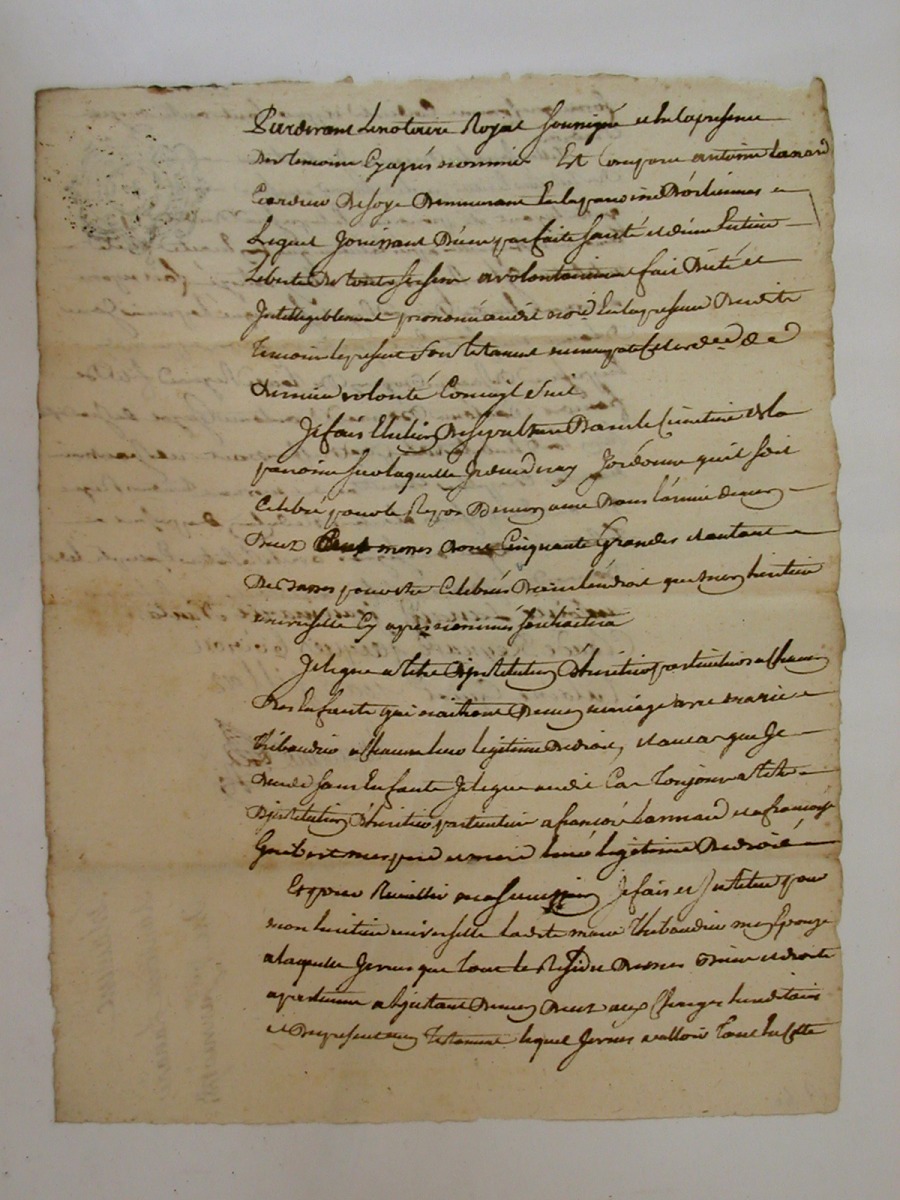 Pardevant Le notaire Royal soussigné et en la presence
des temoins Cy après nommés Est Comparu antoine Lanard
Cardeur De soye Demeurant En la paroisse D'orliennas
Lequel Jouissant D'une parfaite santé et d'une Entiere
Liberté De tous ses sens a volontairement fait Dicté et
Intelligiblement prononcé audit no.re En la presence Desdits
Temoins le present son testament noncupatif et ord.ce de
derniere volonté Comme s'Ensuit
Je fais Election De sepulture Dans le Cimetiere de la
paroisse sur laquelle Je decederay J'ordonne qu'il soit
Celebré pour le Repos De mon ame Dans l'année de mon
Deces messes dont Cinquante Grandes et autant
De Basses pour etre Celebrées Dans l'endroit que mon heritiere
universelle Cy apres nommée souhaitera
Je legue a titre D'institution D'heritier particulier a chacun
Des Enfants qui naitront De mon mariage avec marie
Thibaudier a chacun leur legitime De droit, et au cas que Je
Decede sans Enfants Je legue audit Cas Toujours a titre
D'institution D'heritier particulier a françois Lannard et a françoise
mes pere et mere leur legitime De droit
Et pour Recueillir ma succession Je fais et Institue pour
mon heritiere universelle ladite marie Thibaudier mon Epouze
a laquelle Je veux que tout le Residu De mes Biens et droits
apartienne a la De mon Deces aux Charges hereditaires
et Du present mon Testament lequel Je veux valloir Tout En cette